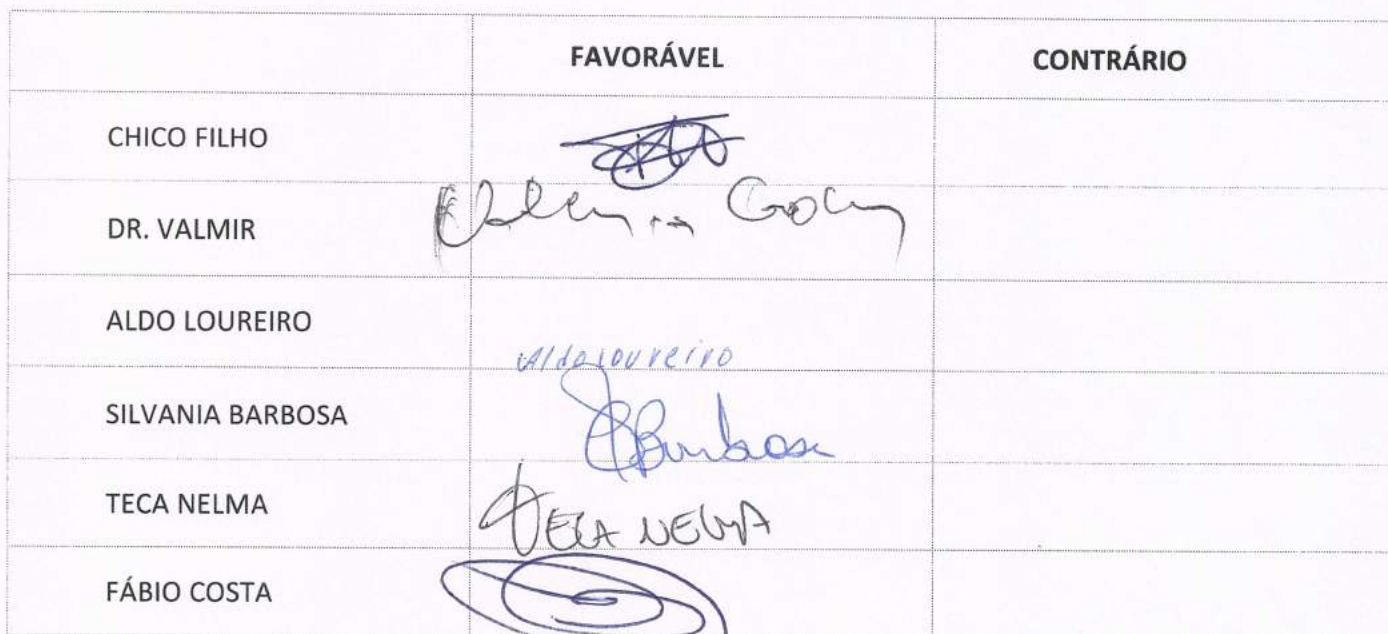 FAVORÁVEL CONTRÁRIO
CHICO FILHO
DR. VALMIR
ALDO LOUREIRO
Aldo Loureiro
SILVANIA BARBOSA
Barbosa
TECA NELMA
TECA NELMA
FÁBIO COSTA